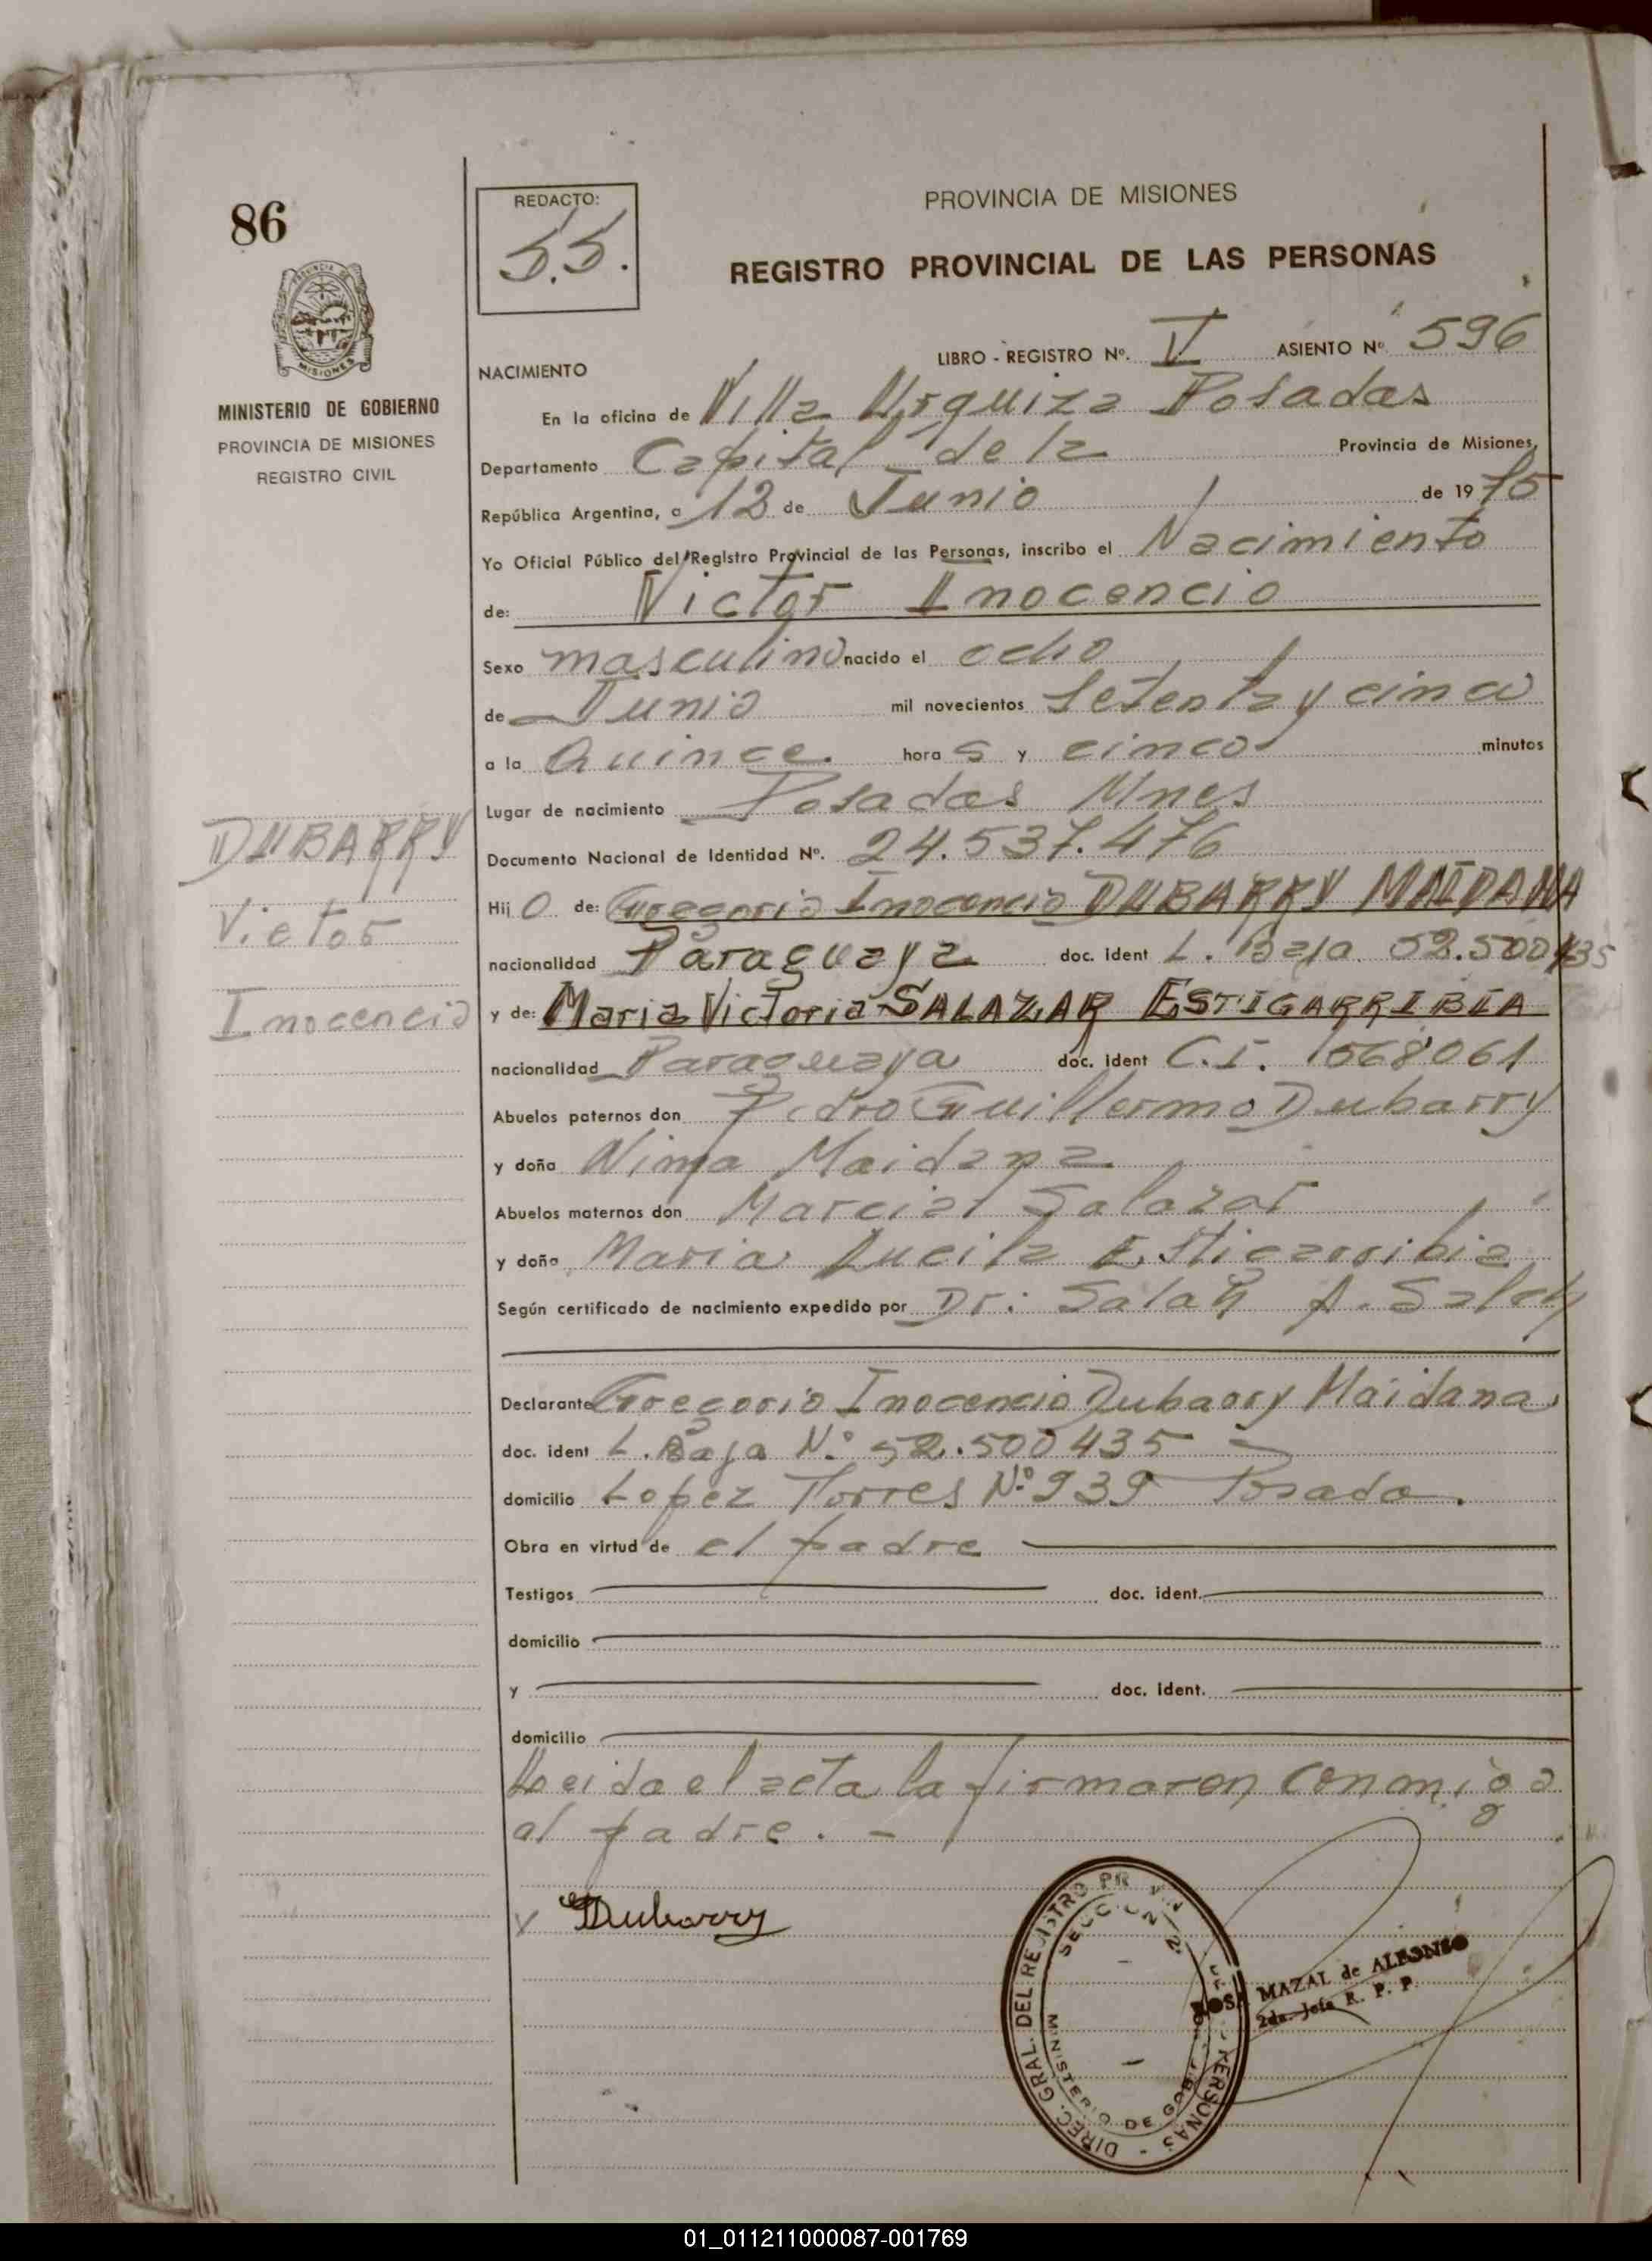 86
REDACTO:
S.S.
PROVINCIA DE MISIONES
REGISTRO PROVINCIAL DE LAS PERSONAS
MINISTERIO DE GOBIERNO
PROVINCIA DE MISIONES
REGISTRO CIVIL
NACIMIENTO
LIBRO - REGISTRO Nº. V ASIENTO Nº 596
En la oficina de Villa Urquiza Posadas
Departamento Capital de la Provincia de Misiones,
República Argentina, a 12 de Junio de 1975
Yo Oficial Público del Registro Provincial de las Personas, inscribo el Nacimiento
de: Victor Inocencio
Sexo masculino nacido el ocho
de Junio mil novecientos Setenta y cinco
a la Quince hora s y cinco minutos
Lugar de nacimiento Posadas Mnes
DUBARRY
Victor
Inocencio
Documento Nacional de Identidad Nº. 24.537.476
Hij o de: Gregorio Inocencio DUBARRY MAIDANA
nacionalidad Paraguaya doc. ident L. Baja 52.500435
y de: Maria Victoria SALAZAR ESTIGARRIBIA
nacionalidad Paraguaya doc. ident C.I. 1568061
Abuelos paternos don Pedro Guillermo Dubarry
y doña Maidana
Abuelos maternos don Marcial Salazar
y doña Maria Lucila Estigarribia
Según certificado de nacimiento expedido por Dr: Salah A. Saleh
Declarante Gregorio Inocencio Dubarry Maidana
doc. ident L. Baja Nº 52.500435
domicilio Lopez Torres Nº 939 Posada.
Obra en virtud de el padre
Testigos doc. ident.
domicilio
y doc. ident.
domicilio
Leida el acta la firmaron conmigo
el padre. -
GDubarry
DIREC. GRAL. DEL REGISTRO PERSONAS
SECCION 2
MINISTERIO DE GOB
ROSA MAZAL de ALFONSO
2da. Jefa R. P. P.
01_011211000087-001769